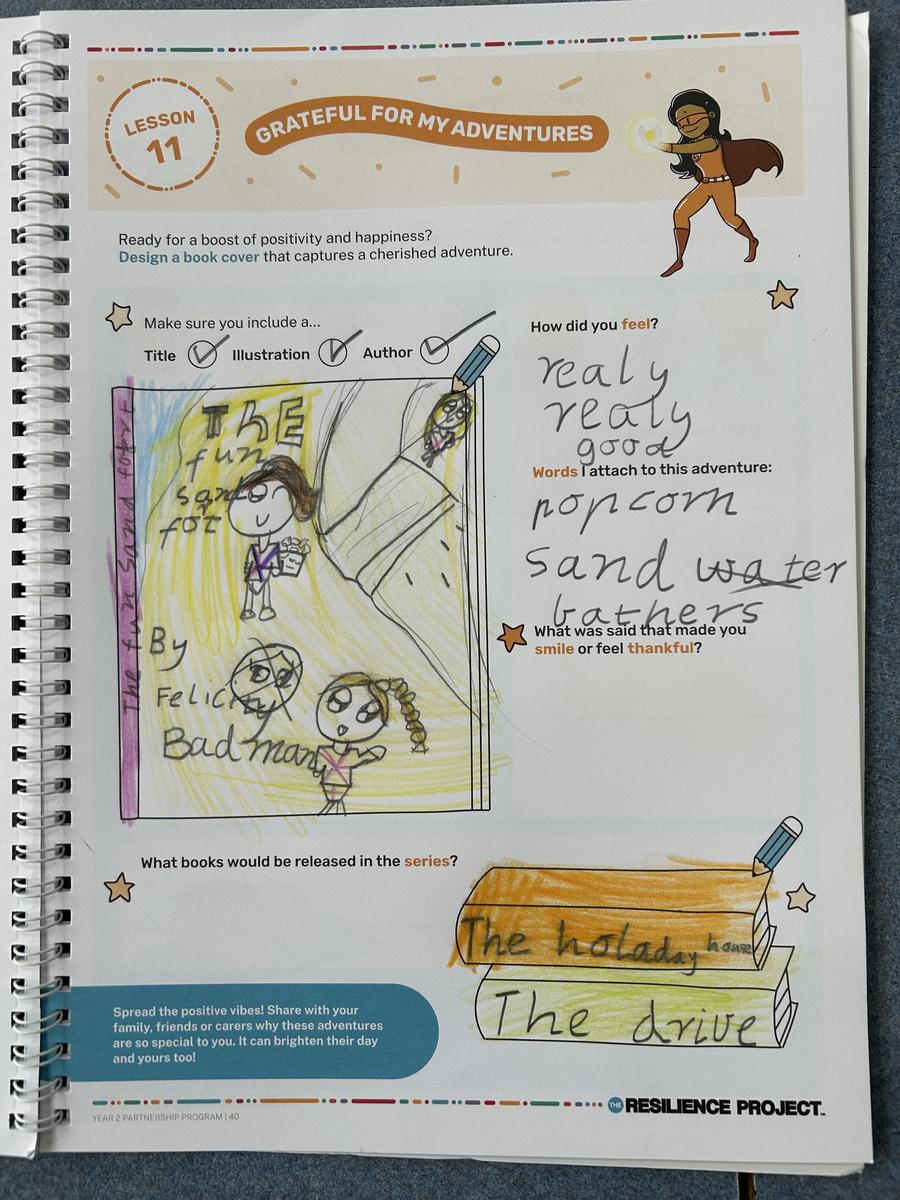 LESSON
11
GRATEFUL FOR MY ADVENTURES
Ready for a boost of positivity and happiness?
Design a book cover that captures a cherished adventure.
Make sure you include a...
Title Illustration Author
THE
fun
sand
fot
By
Felicity
Badman
The fun sand fort
How did you feel?
realy
realy
good
Words I attach to this adventure:
popcorn
sand water
bathers
What was said that made you
smile or feel thankful?
What books would be released in the series?
The holaday house
The drive
Spread the positive vibes! Share with your
family, friends or carers why these adventures
are so special to you. It can brighten their day
and yours too!
YEAR 2 PARTNERSHIP PROGRAM | 40
THE RESILIENCE PROJECT